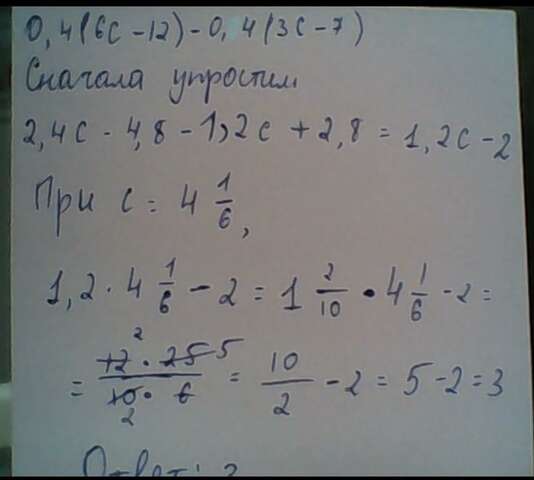 0,4(6с-12)-0,4(3с-7)
Сначала упростим
2,4с - 4,8 - 1,2с + 2,8 = 1,2с - 2
При с = 4 1/6,
1,2 · 4 1/6 - 2 = 1 2/10 · 4 1/6 - 2 =
= 12 2 · 25 5 / 10 2 · 6 = 10/2 - 2 = 5 - 2 = 3